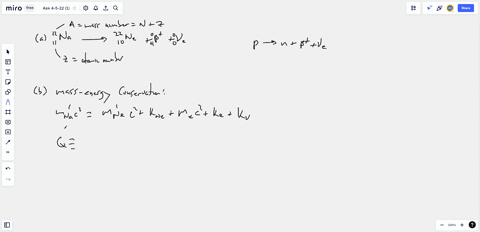 miro Ask 4-5-22 (1) Share
A = mass number = N + Z
(a) ²²₁₁Na → ²²₁₀Ne + ⁰₊₁β⁺ + ⁰₀νₑ
p → n + β⁺ + νₑ
Z = atomic number
(b) mass-energy conservation:
m'Na c² = m'Ne c² + KNe + mₑc² + Kₑ + Kν
Q ≡